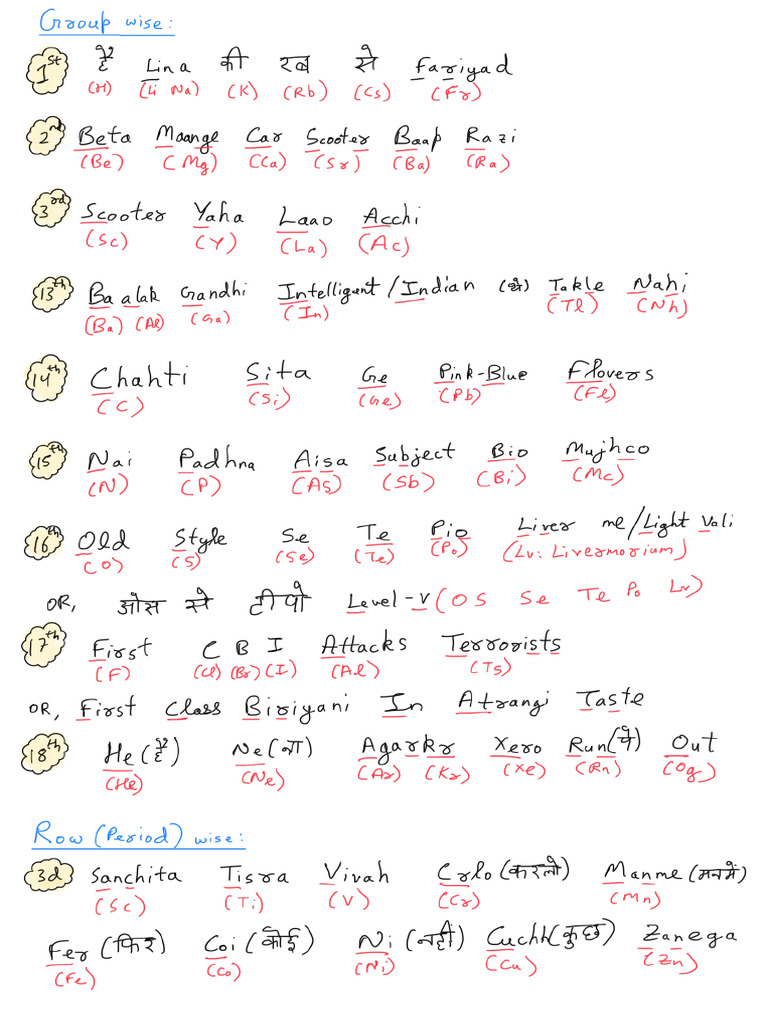 Group wise:
1st हे Lina की रब से Fariyad
(H) (Li Na) (K) (Rb) (Cs) (Fr)
2nd Beta Maange Car Scooter Baap Razi
(Be) (Mg) (Ca) (Sr) (Ba) (Ra)
3rd Scooter Yaha Laao Acchi
(Sc) (Y) (La) (Ac)
13th Baalak Gandhi Intelligent/Indian (थे) Takle Nahi
(Ba) (Al) (Ga) (In) (Tl) (Nh)
14th Chahti Sita Ge Pink-Blue Flovers
(C) (Si) (Ge) (Pb) (Fl)
15th Nai Padhna Aisa Subject Bio Mujhco
(N) (P) (As) (Sb) (Bi) (Mc)
16th Old Style Se Te Pio Liver me/Light Vali
(O) (S) (Se) (Te) (Po) (Lv: Livermorium)
OR, ओस से टीपो Level-v (O S Se Te Po Lv)
17th First C B I Attacks Terrorists
(F) (Cl) (Br) (I) (At) (Ts)
OR, First Class Biriyani In Atrangi Taste
18th He (हे) Ne (ना) Agarkr Xero Run (पे) Out
(He) (Ne) (Ar) (Kr) (Xe) (Rn) (Og)
Row (Period) wise:
3d Sanchita Tisra Vivah Crlo (करलो) Manme (मनमें)
(Sc) (Ti) (V) (Cr) (Mn)
Fer (फिर) Coi (कोई) Ni (नहीं) Cuchh (कुछ) Zanega
(Fe) (Co) (Ni) (Cu) (Zn)